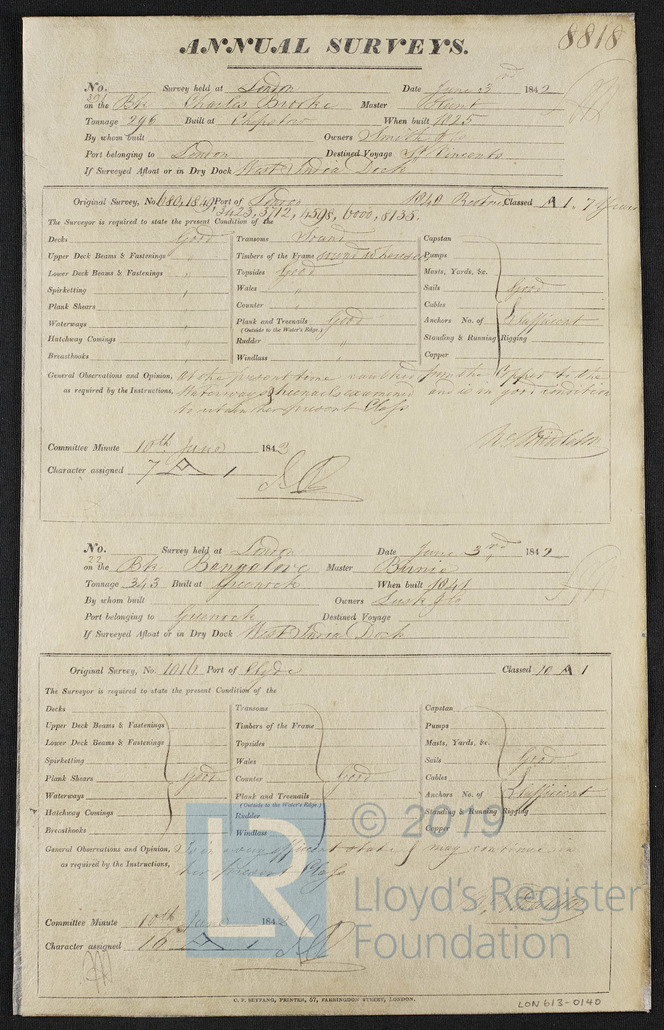 8818
ANNUAL SURVEYS.
No. Survey held at London Date June 3rd 1842
on the Bk Charles Brooke Master
Tonnage 296 Built at Chepstow When built 1825
By whom built Owners Smith & Co
Port belonging to London Destined Voyage St Vincents
If Surveyed Afloat or in Dry Dock West India Dock
Original Survey, No. Port of London 1840 Classed A 1. 7 Years
3423, 3712, 4598, 6000, 8135.
The Surveyor is required to state the present Condition of the
Decks Good Transoms Sound Capstan
Upper Deck Beams & Fastenings " Timbers of the Frame Pumps
Lower Deck Beams & Fastenings " Topsides Good Masts, Yards, &c.
Spirketting " Wales " Sails Good
Plank Shears " Counter " Cables
Waterways " Plank and Treenails Good Anchors No. of Sufficient
(Outside to the Water's Edge.)
Hatchway Comings " Rudder " Standing & Running Rigging
Breasthooks " Windlass " Copper
General Observations and Opinion, At the present time from the Copper to the
as required by the Instructions, Waterways & treenails examined and is in good condition
to retain her present Class
Committee Minute 10th June 184
Character assigned 7 A 1
No. Survey held at London Date June 3rd 1842
on the Bk Bangalore Master Birnie
Tonnage 343 Built at Greenock When built 1841
By whom built Owners Lusk & Co
Port belonging to Greenock Destined Voyage
If Surveyed Afloat or in Dry Dock West India Dock
Original Survey, No. 1016 Port of Clyde Classed 10 A 1
The Surveyor is required to state the present Condition of the
Decks Transoms Capstan
Upper Deck Beams & Fastenings Timbers of the Frame Pumps
Lower Deck Beams & Fastenings Topsides Masts, Yards, &c.
Spirketting Wales Sails Good
Plank Shears Good Counter Good Cables
Waterways Plank and Treenails Anchors No. of Sufficient
(Outside to the Water's Edge.)
Hatchway Comings Rudder Standing & Running Rigging
Breasthooks Windlass Copper
General Observations and Opinion, Is in very efficient state & may continue in
as required by the Instructions, her present Class
Committee Minute 10th June 184
Character assigned 10 A 1
LR
© 2019
Lloyd's Register
Foundation
C. F. SEYFANG, PRINTER, 57, FARRINGDON STREET, LONDON.
LON 613-0140